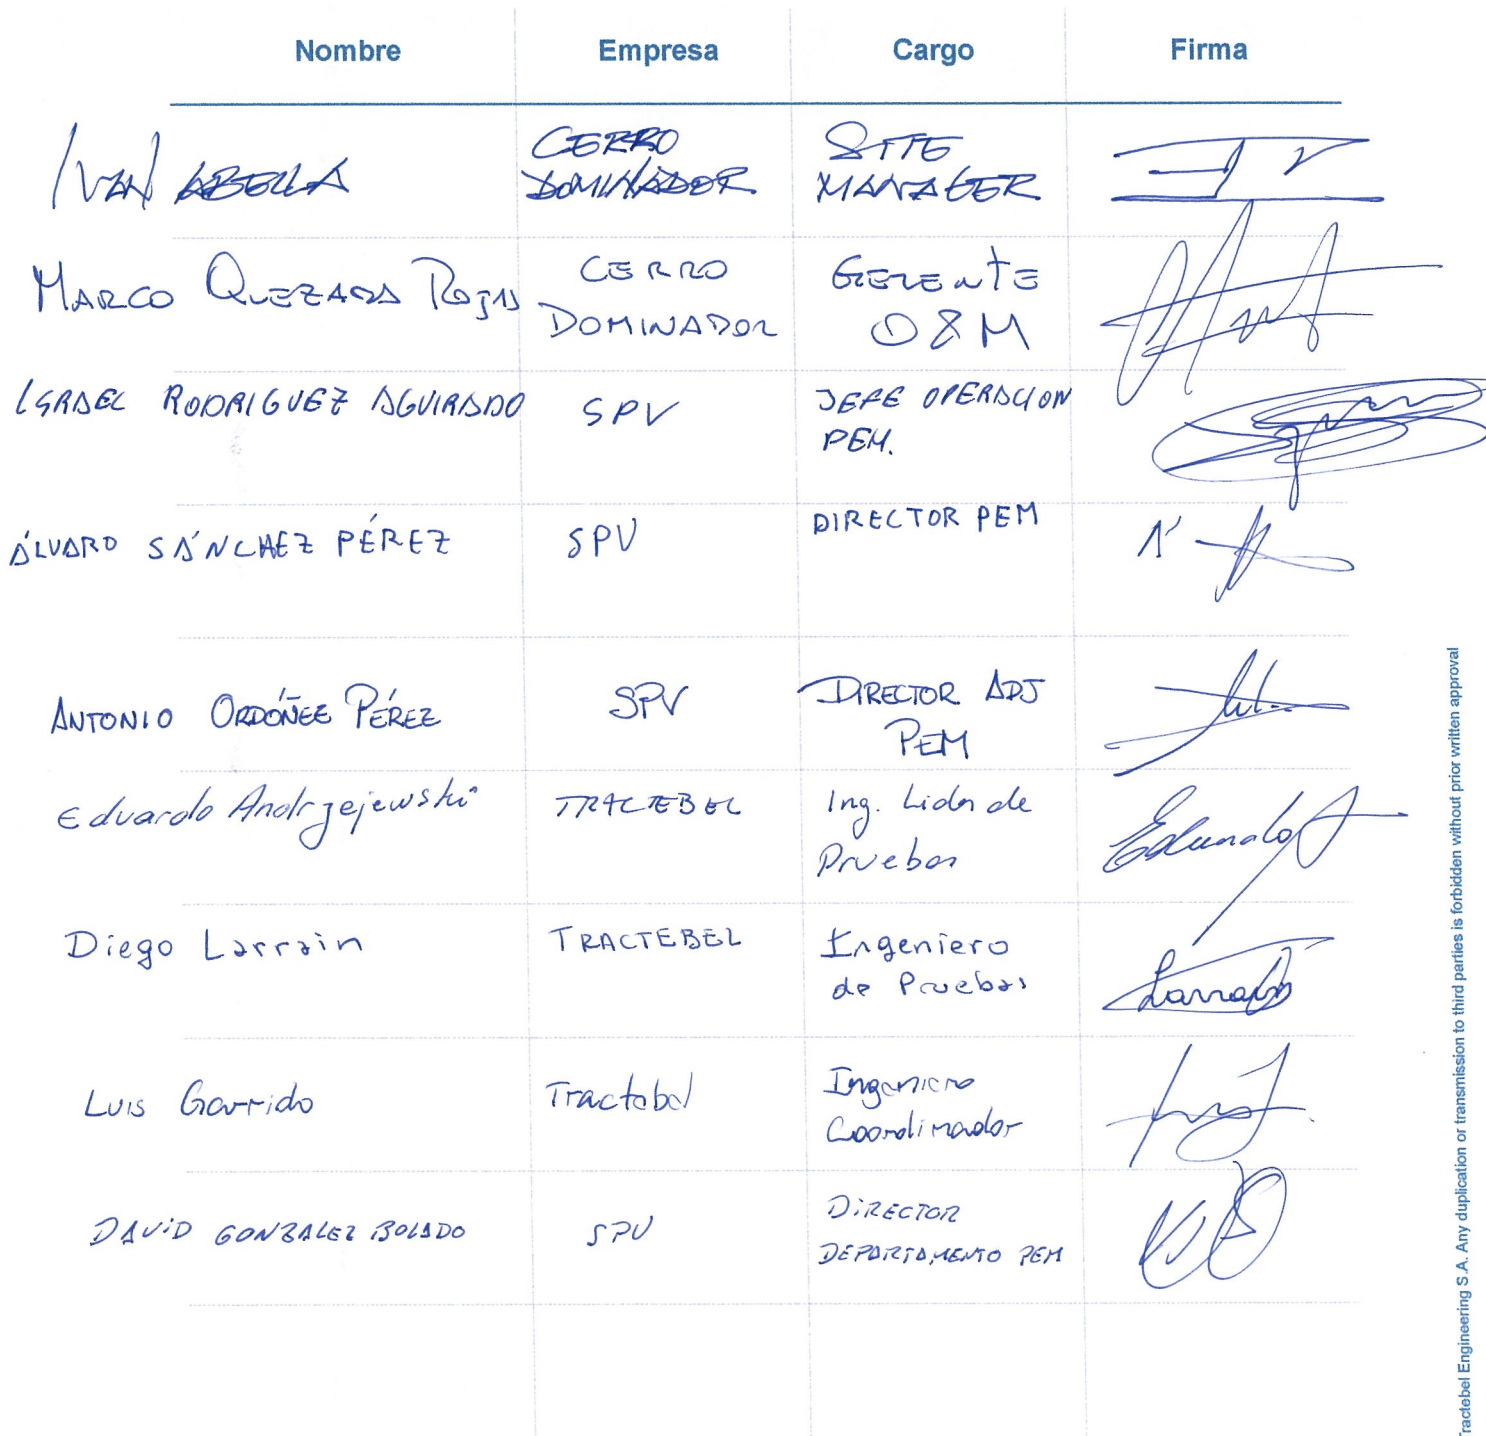 Nombre Empresa Cargo Firma
IVAN ABELLA CERRO DOMINADOR SITE MANAGER
MARCO QUEZADA ROJAS CERRO DOMINADOR GERENTE O&M
ISRAEL RODRIGUEZ AGUIRADO SPV JEFE OPERACION PEM.
ÁLVARO SÁNCHEZ PÉREZ SPV DIRECTOR PEM
ANTONIO ORDÓÑEZ PÉREZ SPV DIRECTOR ADJ PEM
Eduardo Andrzejewski TRACTEBEL Ing. Lider de Pruebas Eduardo A
Diego Larrain TRACTEBEL Ingeniero de Pruebas Larrain
Luis Garrido Tractebel Ingeniero Coordinador
DAVID GONZALEZ BOLADO SPV DIRECTOR DEPARTAMENTO PEM
Tractebel Engineering S.A. Any duplication or transmission to third parties is forbidden without prior written approval